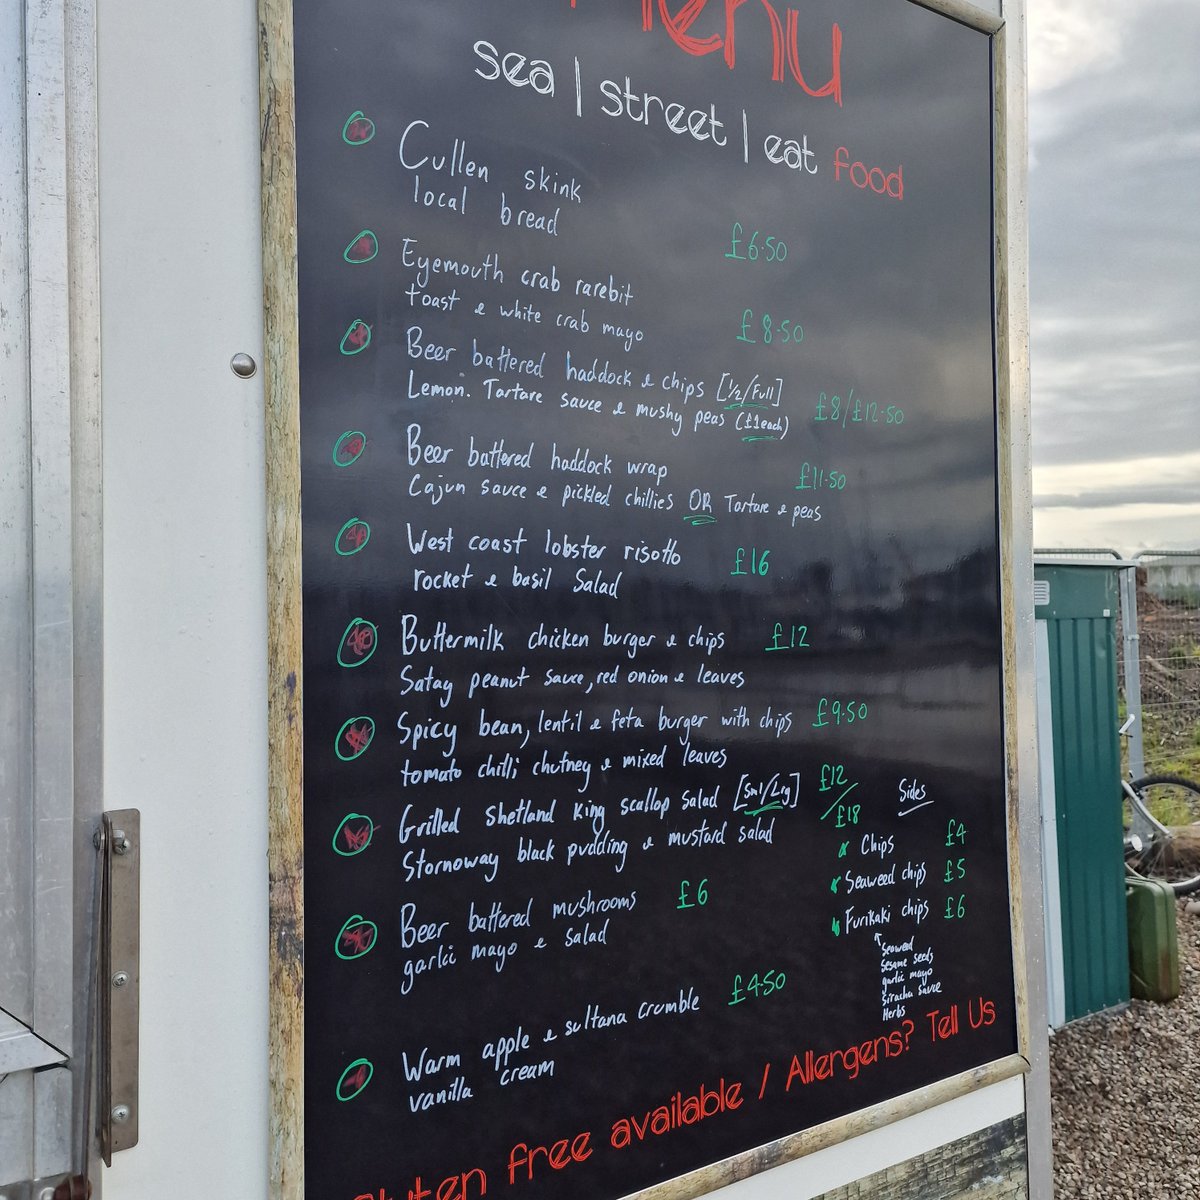 Menu
sea | street | eat food
Cullen skink
local bread
£6.50
Eyemouth crab rarebit
toast e white crab mayo
£8.50
Beer battered haddock e chips [1/2/Full]
Lemon. Tartare sauce e mushy peas (£1each)
£8/£12.50
Beer battered haddock wrap
£11.50
Cajun sauce e pickled chillies OR Tartare e peas
West coast lobster risotto
£16
rocket e basil Salad
Buttermilk chicken burger e chips £12
Satay peanut sauce, red onion e leaves
Spicy bean, lentil e feta burger with chips £9.50
tomato chilli chutney e mixed leaves
Grilled Shetland King scallop salad [Sml/Lrg] £12/£18
Stornoway black pudding e mustard salad
Beer battered mushrooms £6
garlic mayo e salad
Warm apple e sultana crumble £4.50
vanilla cream
Sides
Chips £4
Seaweed chips £5
Furikaki chips £6
Seaweed
Sesame seeds
garlic mayo
Siracha sauce
Herbs
Gluten free available / Allergens? Tell Us